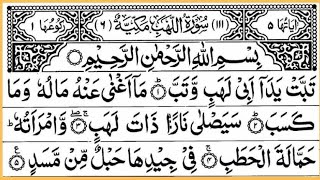 اٰيَاتُهَا ۵ (۱۱۱) سُوْرَةُ اللَّهَبِ مَكِّيَّةٌ (۶) رُكُوْعُهَا ۱
بِسْمِ اللّٰهِ الرَّحْمٰنِ الرَّحِيْمِ
تَبَّتْ يَدَآ اَبِيْ لَهَبٍ وَّتَبَّ ۱ مَآ اَغْنٰى عَنْهُ مَالُهٗ وَمَا
كَسَبَ ۲ سَيَصْلٰى نَارًا ذَاتَ لَهَبٍ ۳ وَّامْرَاَتُهٗ ط
حَمَّالَةَ الْحَطَبِ ۴ فِيْ جِيْدِهَا حَبْلٌ مِّنْ مَّسَدٍ ۵